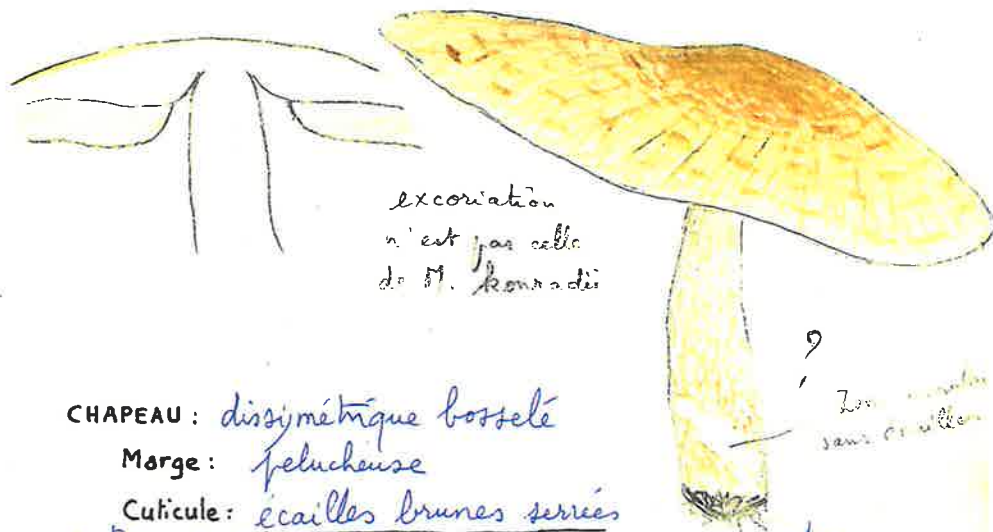 excoriation
n'est pas celle
de M. konradii
?
sans
CHAPEAU : dissymétrique bosselé
Marge : pelucheuse
Cuticule : écailles brunes serrées